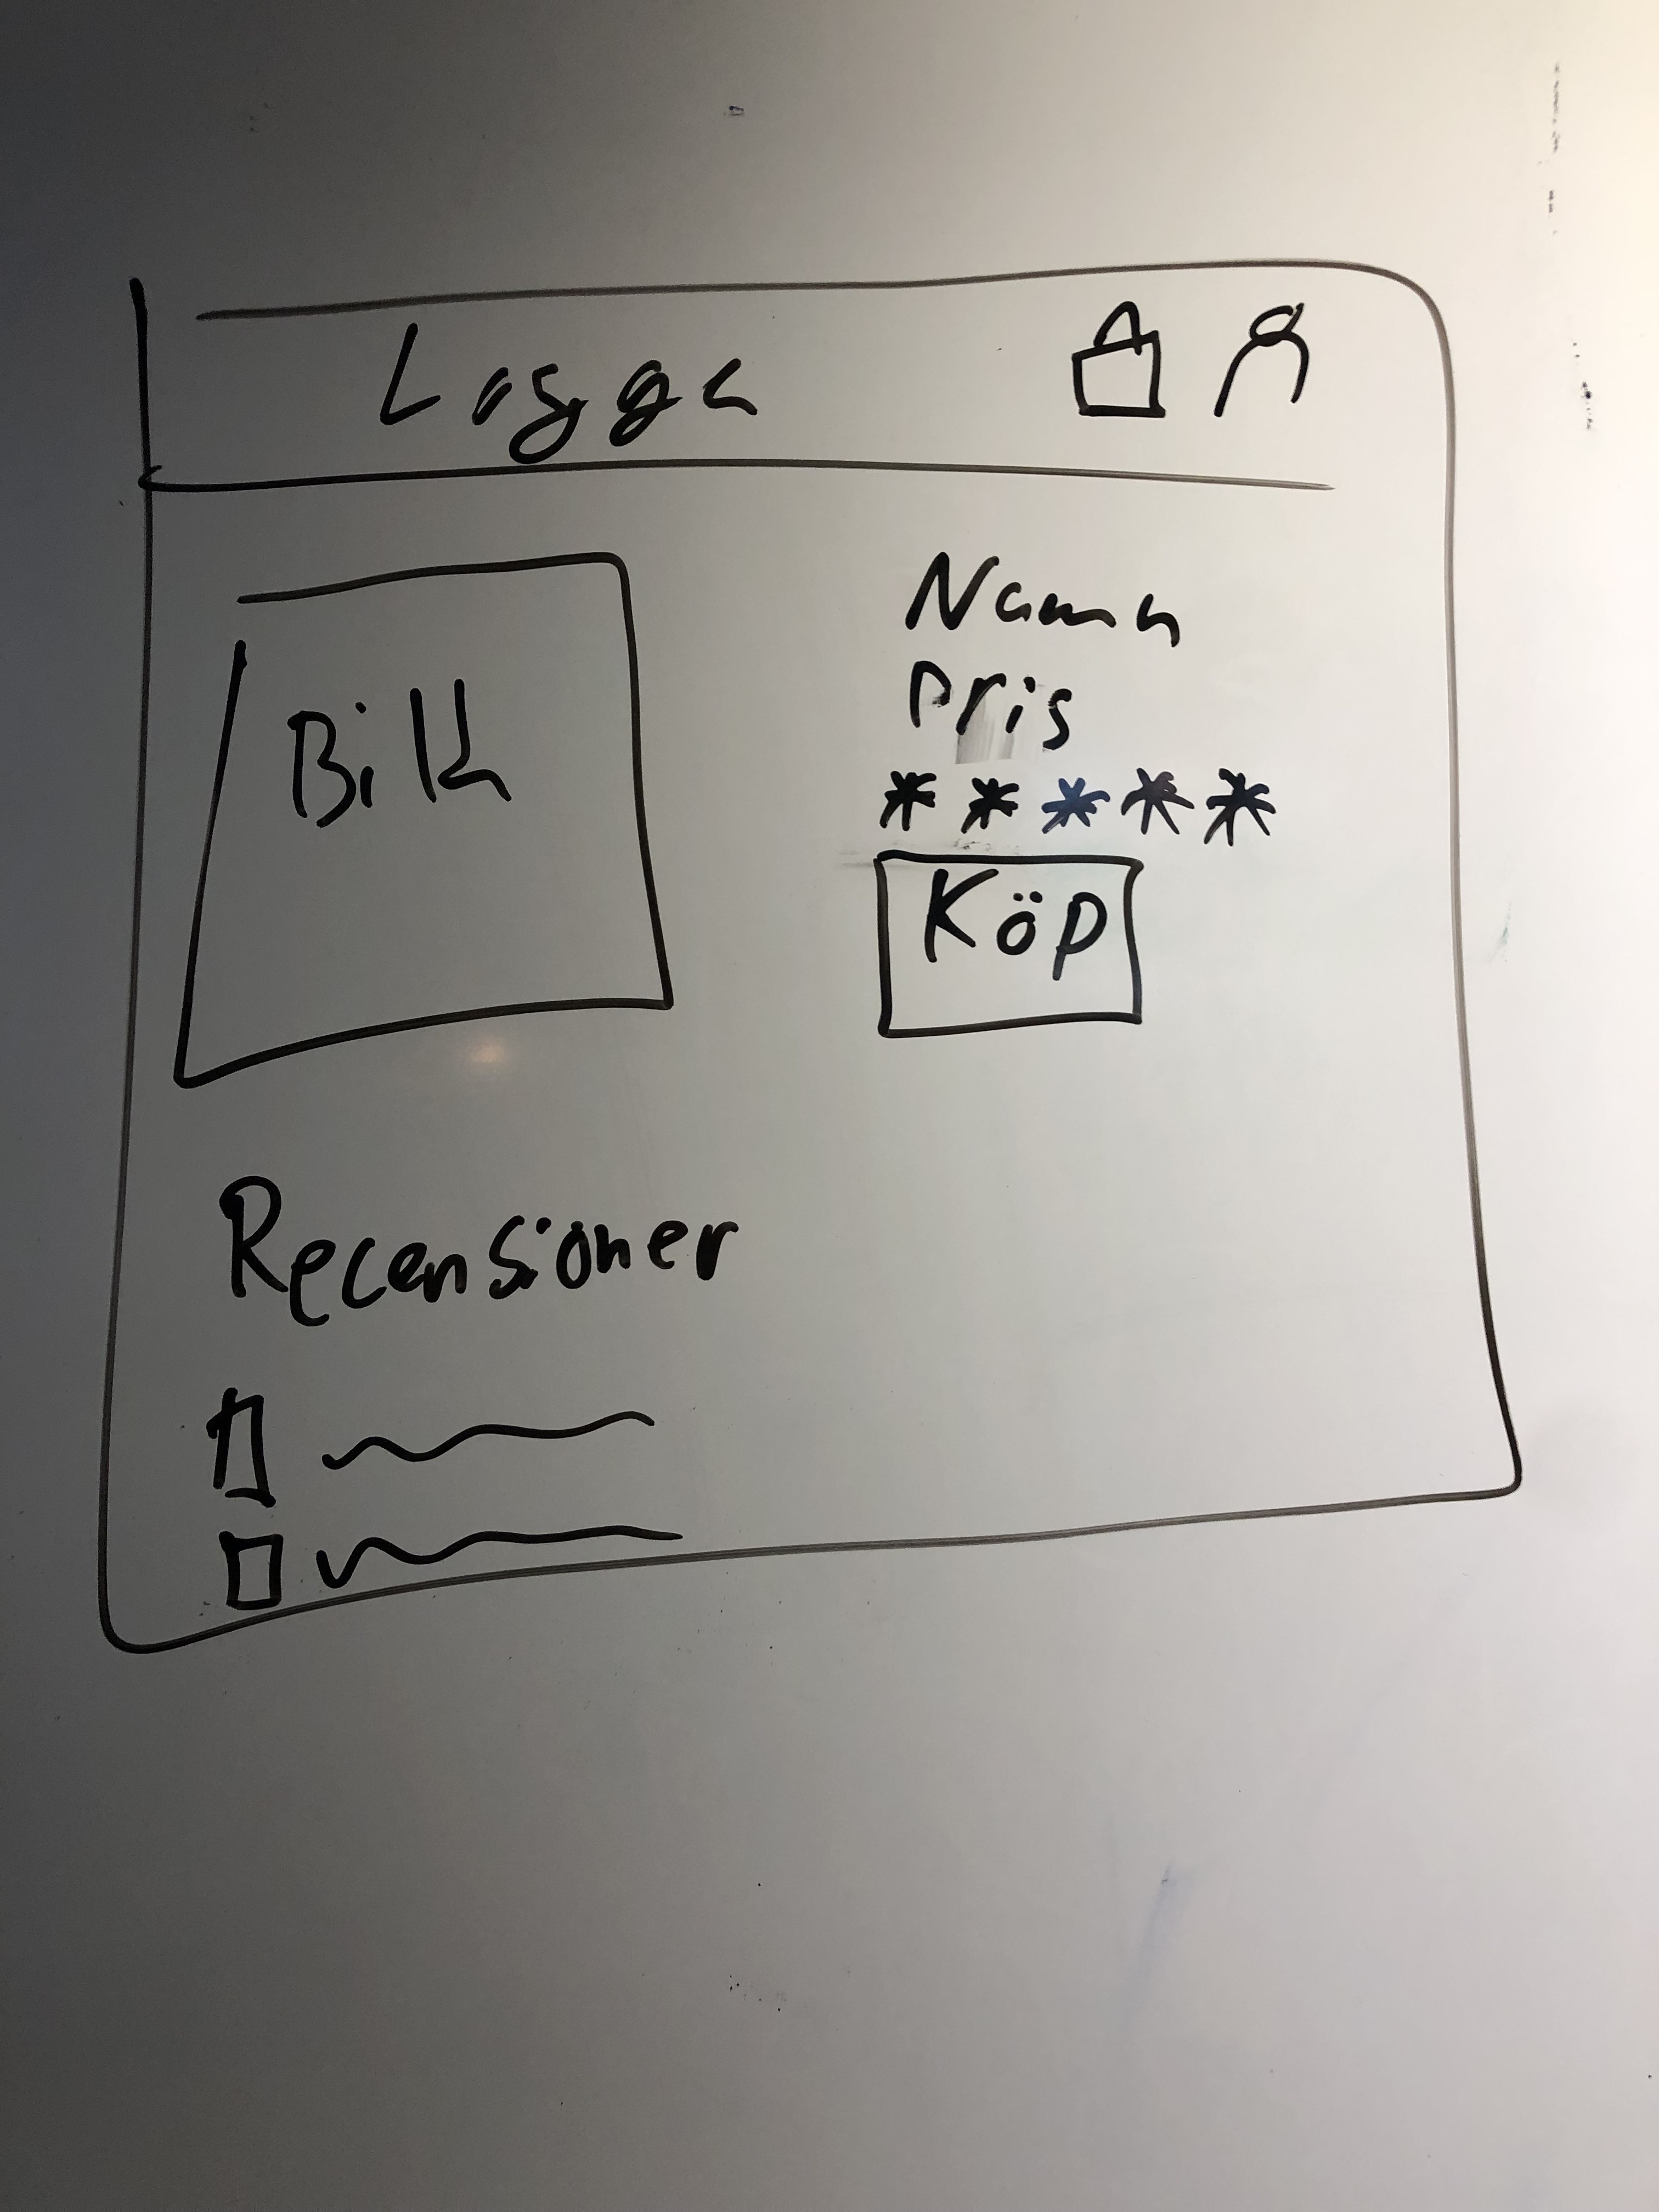 Logga
Bild
Namn
Pris
*****
Köp
Recensioner